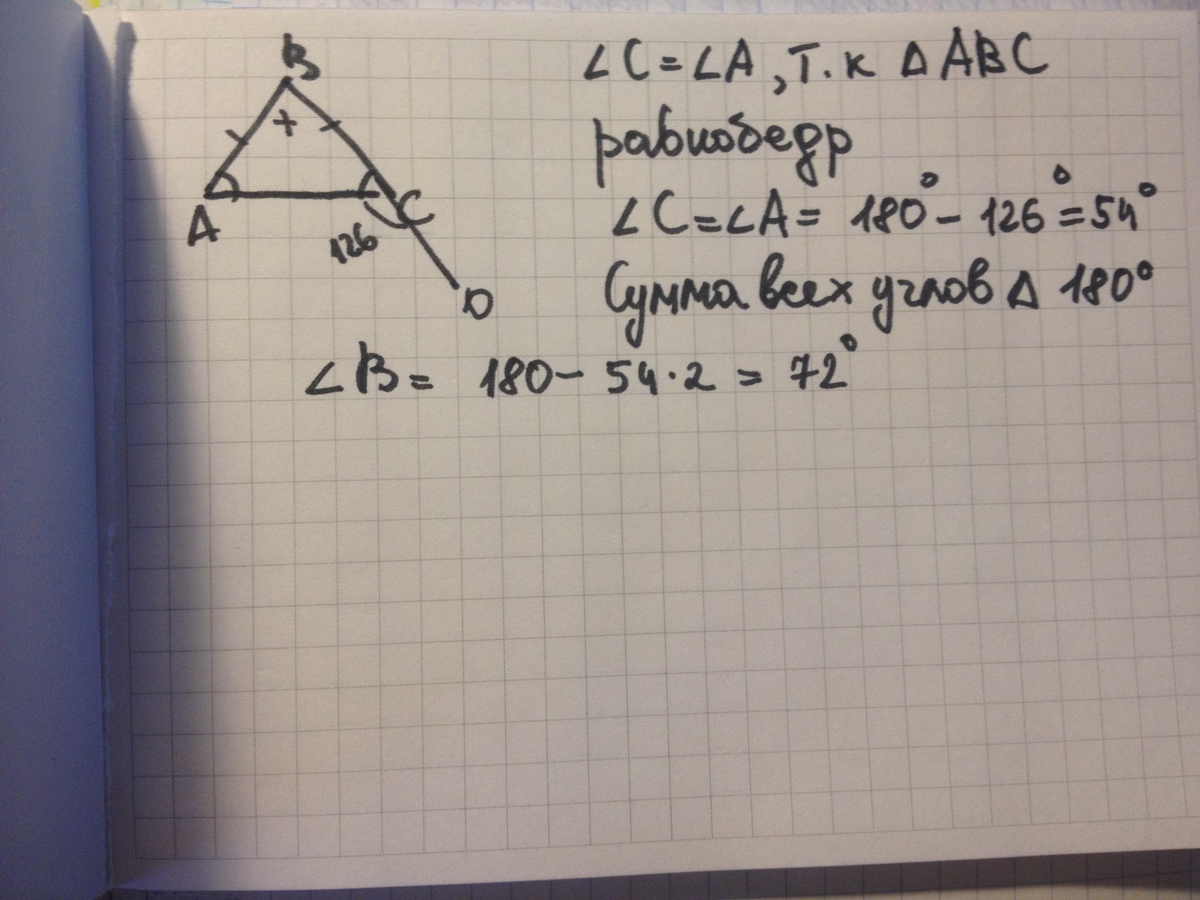 B
A
C
126
D
∠C=∠A, т.к ΔABC
равнобедр
∠C=∠A= 180°- 126°=54°
Сумма всех углов Δ 180°
∠B= 180- 54·2 = 72°